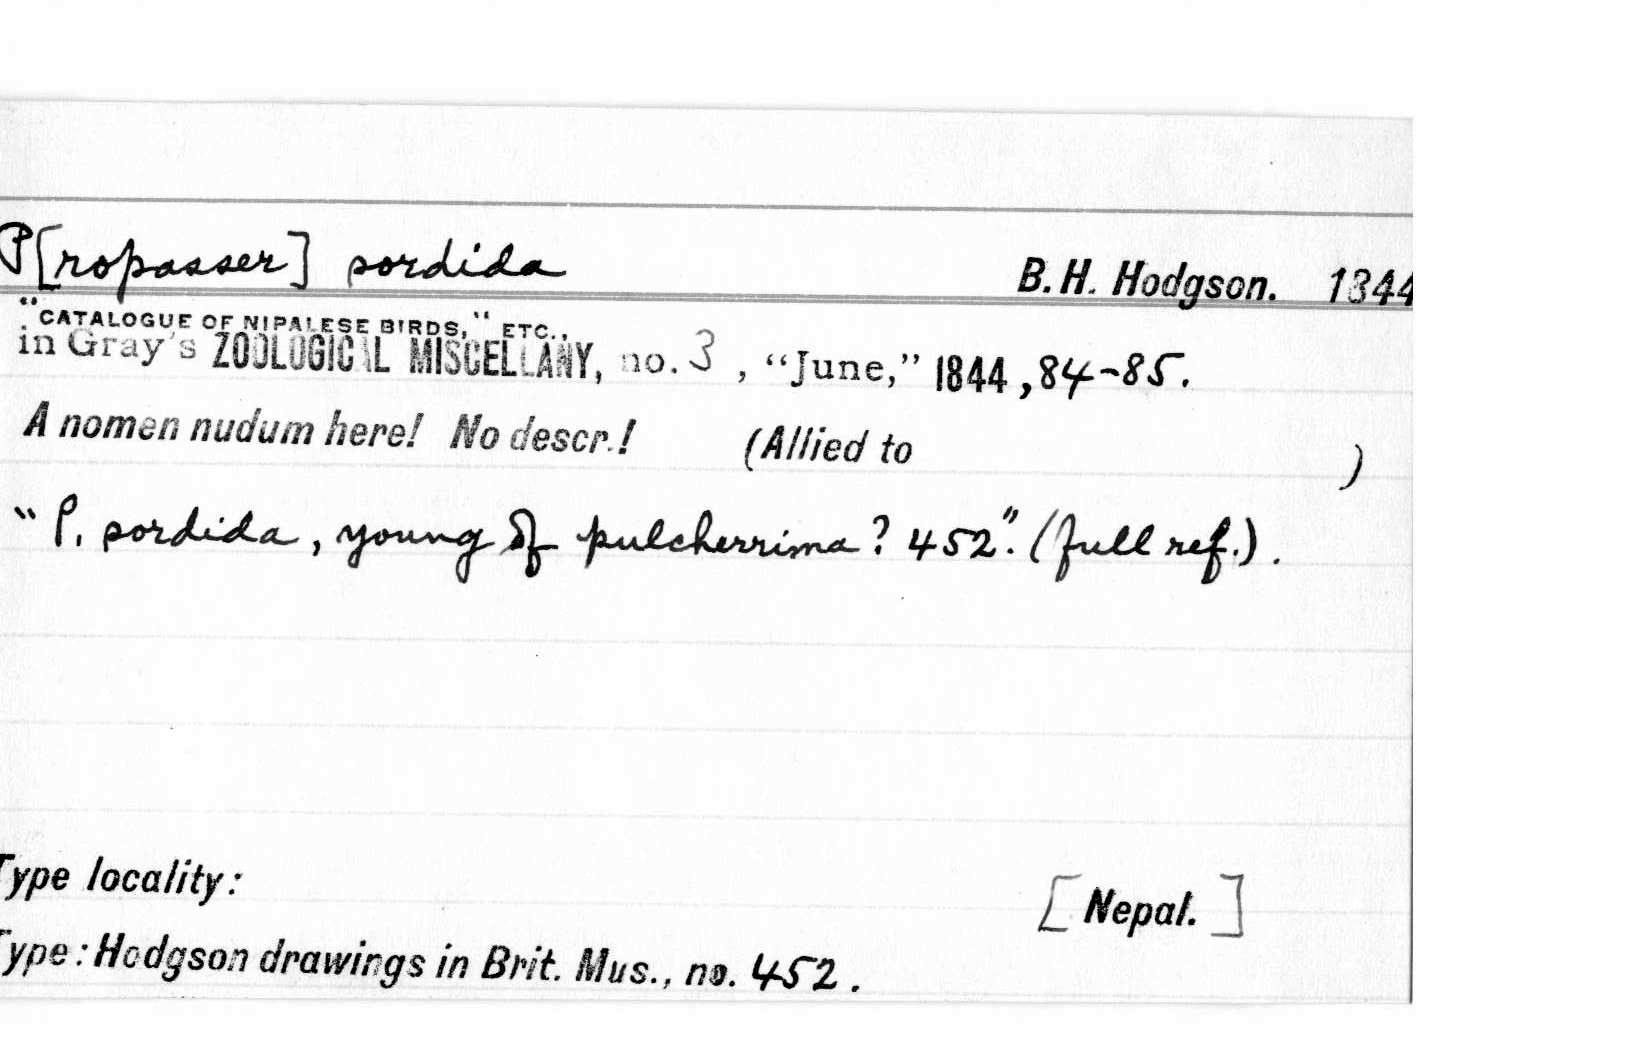 P[ropasser] sordida B. H. Hodgson. 1844
"CATALOGUE OF NIPALESE BIRDS," ETC.,
in Gray's ZOOLOGICAL MISCELLANY, no. 3, "June," 1844, 84-85.
A nomen nudum here! No descr.! (Allied to )
"P. sordida, young of pulcherrima? 452". (full ref.).
Type locality: [Nepal.]
Type: Hodgson drawings in Brit. Mus., no. 452.